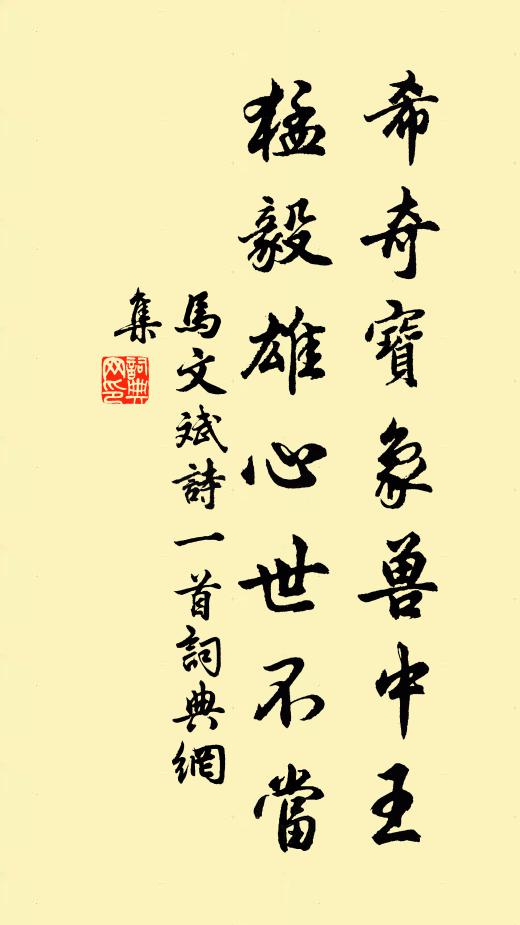 希奇寶象兽中王
猛毅雄心世不當
馬文斌詩一首詞典網
集
詞典
网印